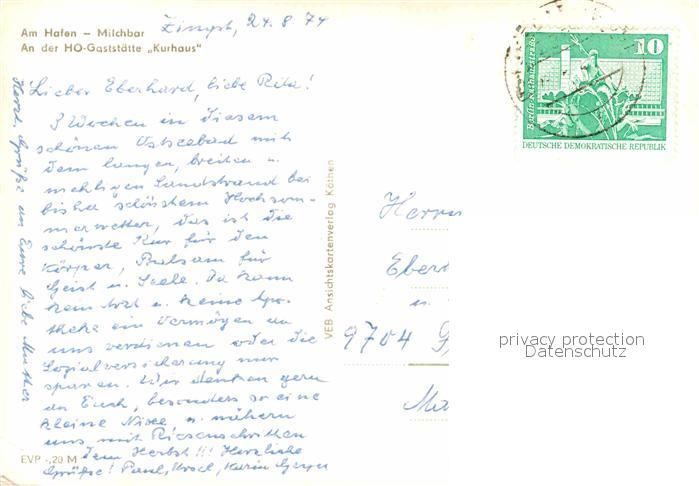 Zingst, 24.8.74
Am Hafen – Milchbar
An der HO-Gaststätte „Kurhaus"
Lieber Eberhard, liebe Rita!
3 Wochen in diesem
schönen Ostseebad mit
dem langen, breiten u.
mehligen Sandstrand bei
bisher schönstem Hochsom-
merwetter, das ist die
schönste Kur für den
Körper, Balsam für
Geist u. Seele. Da kann
kein Arzt u. keine Apo-
theke ein Vermögen an
uns verdienen oder die
Sozialversicherung nur
sparen. Wir denken gern
an Euch, besonders so eine
kleine Nixe u. nähern
uns mit Riesenschritten
dem Herbst!!! Herzliche
Grüße! Paul, Ursel, Karin
Herzl. Grüße an Eure liebe Mutter
EVP -,20 M
VEB Ansichtskartenverlag Köthen
Herrn
Eber
u.
9704
10
Berlin-Rathausstraße
DEUTSCHE DEMOKRATISCHE REPUBLIK
privacy protection
Datenschutz